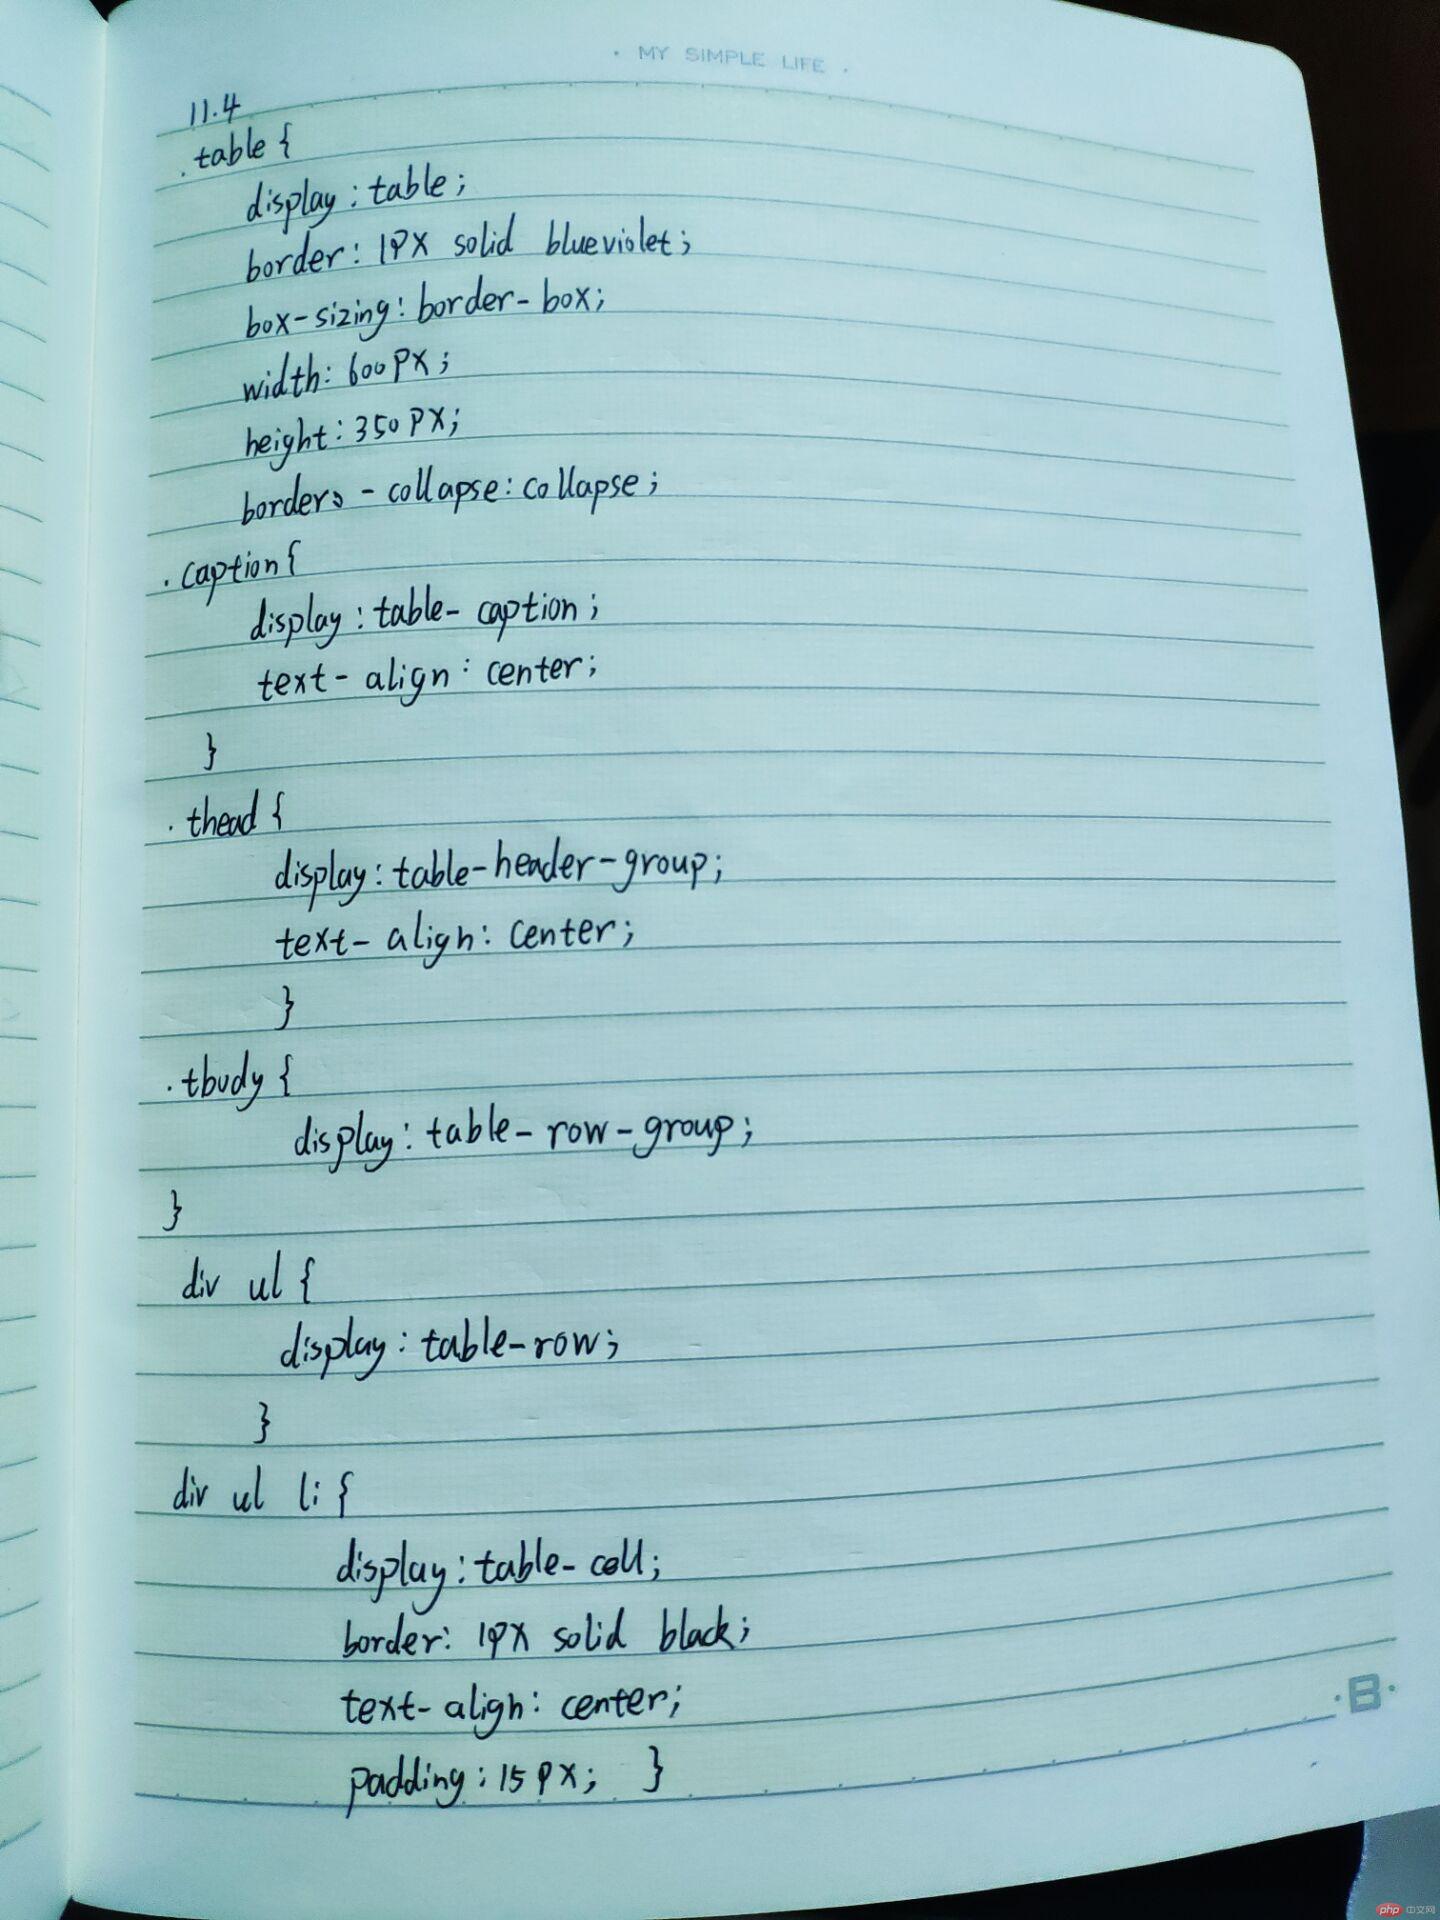 · MY SIMPLE LIFE ·
11.4
.table {
display : table ;
border : 1PX solid blueviolet ;
box-sizing : border-box ;
width : 600PX ;
height : 350PX ;
border-collapse : collapse ;
.caption {
display : table-caption ;
text-align : center ;
}
.thead {
display : table-header-group ;
text-align : center ;
}
.tbody {
display : table-row-group ;
}
div ul {
display : table-row ;
}
div ul li {
display : table-cell ;
border : 1PX solid black ;
text-align : center ;
padding : 15PX ; }
·B·
php 中文网